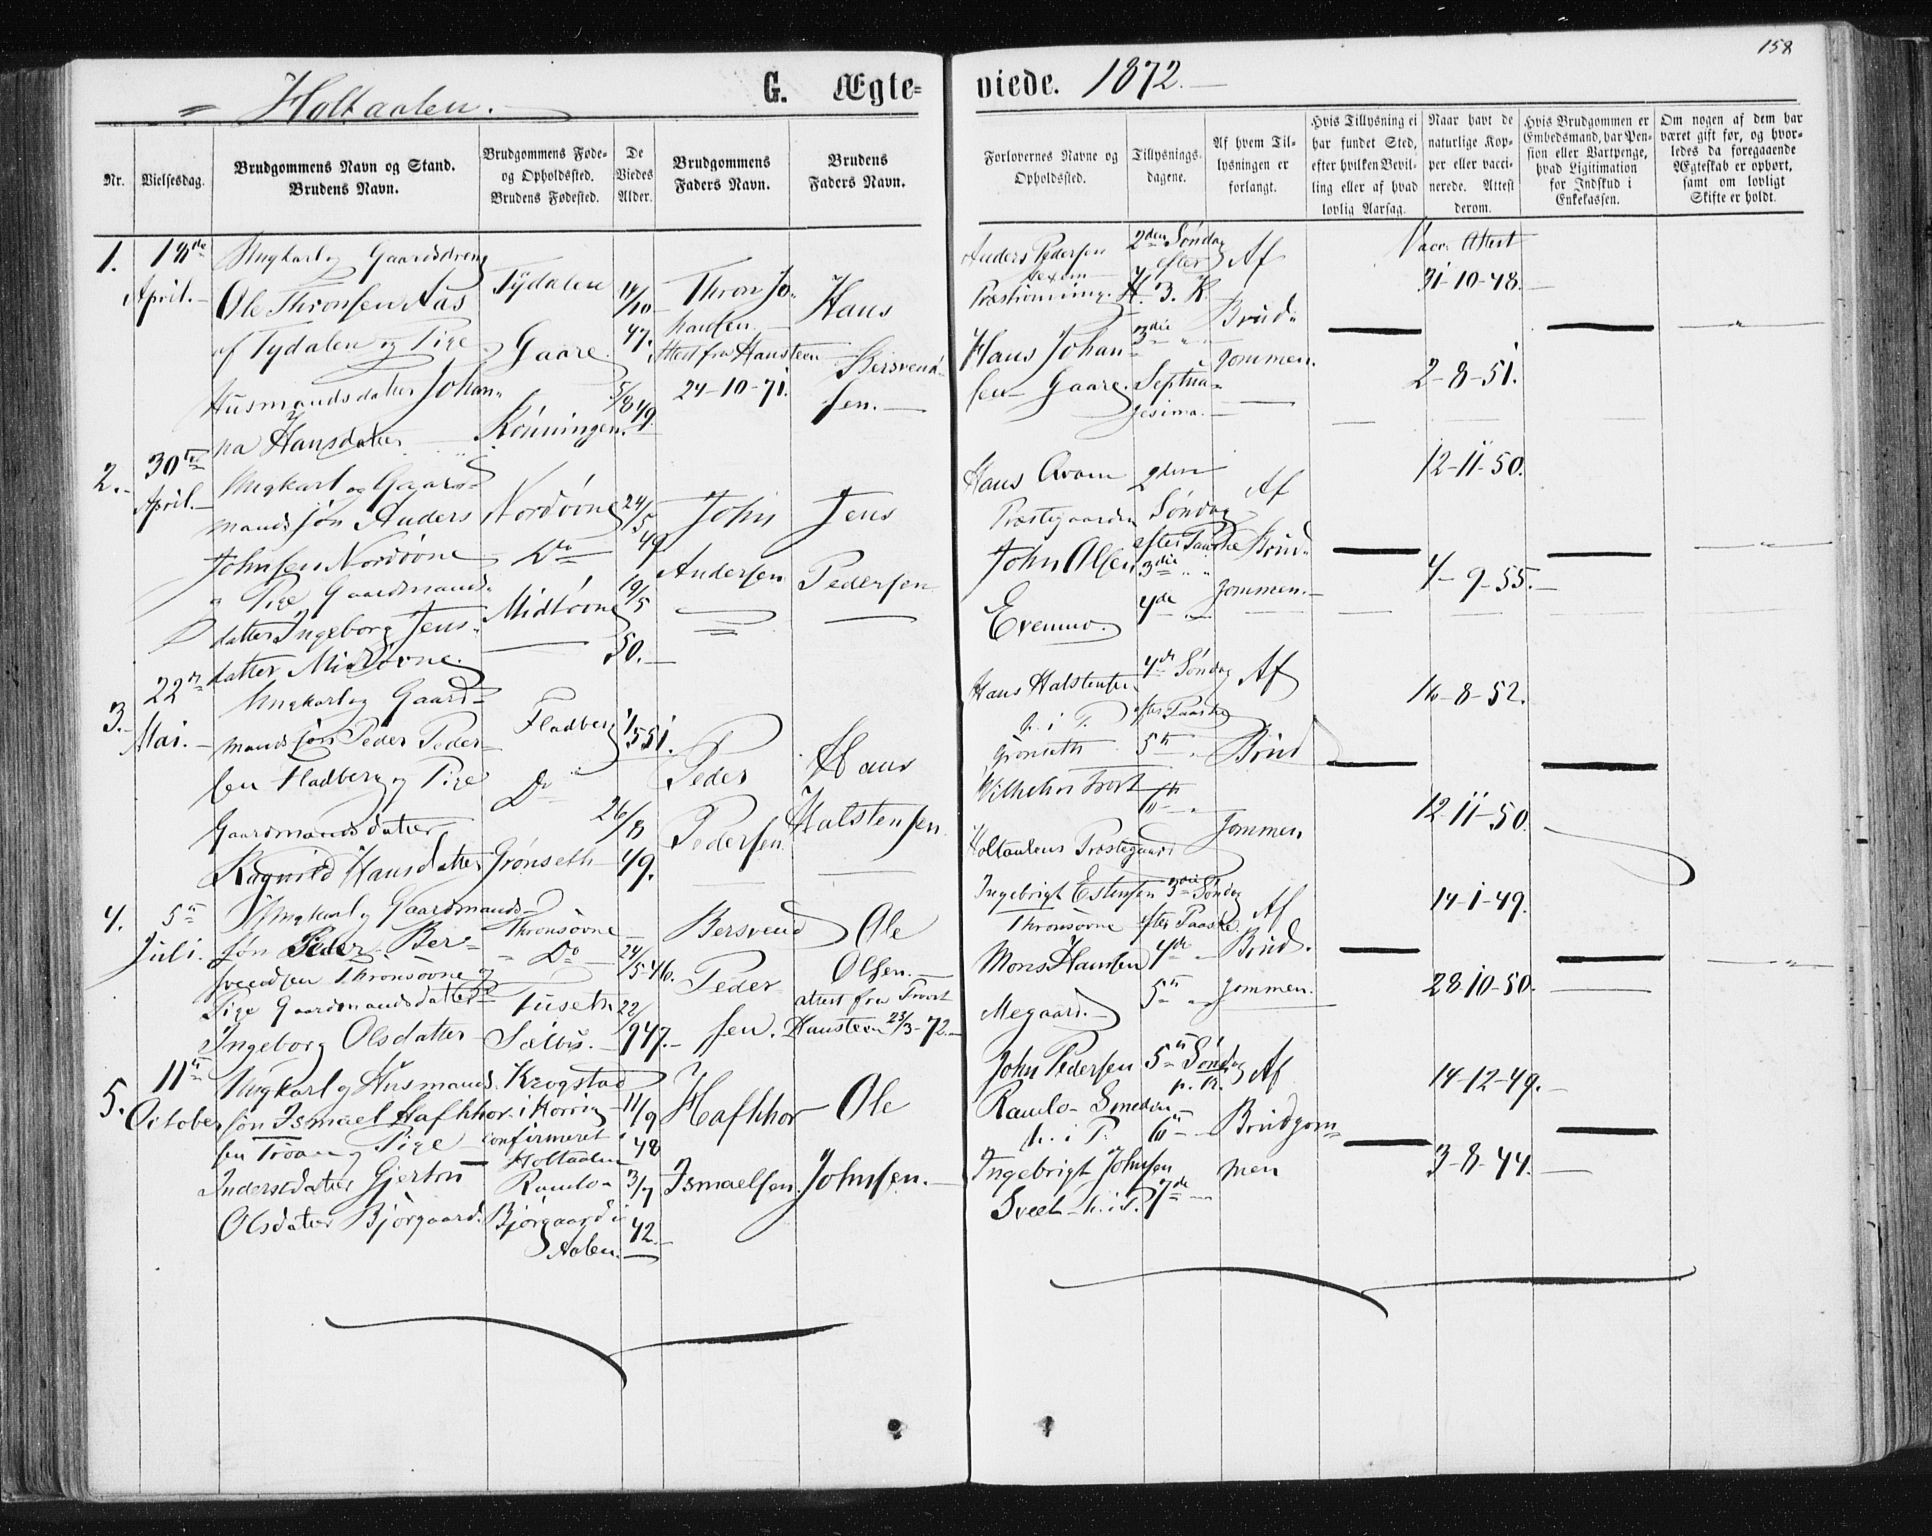 158
Holtaalen.
G. Ægte-
viede. 1872.
Nr.
Vielsesdag.
Brudgommens Navn og Stand.
Brudens Navn.
Brudgommens Føde-
og Opholdssted.
Brudens Fødested.
De
Viedes
Alder.
Brudgommens
Faders Navn.
Brudens
Faders Navn.
Forlovernes Navne og
Opholdssted.
Tillysnings-
dagene.
Af hvem Til-
lysningen er
forlangt.
Hvis Tillysning ei
har fundet Sted,
efter hvilken Bevil-
ling eller af hvad
lovlig Aarsag.
Naar havt de
naturlige Kop-
per eller vacci-
nerede. Attest
derom.
Hvis Brudgommen er
Embedsmand, har Pen-
sion eller Vartpenge,
hvad Legitimation
for Indskud i
Enkekassen.
Om nogen af dem har
været gift før, og hvor-
ledes da foregaaende
Ægteskab er ophørt,
samt om lovligt
Skifte er holdt.
1.
18de
April.
Ungkarl og Gaardsdreng
Ole Thronsen Aas
af Tydalen og Pige
Husmandsdatter Johan-
na Hansdatter
Tydalen
Gaare
Rønningen.
11/10
47.
5/8 49.
Thron Jo-
hansen.
Attest fra Hansteen
24-10-71.
Hans
Bersvend-
sen.
Anders Pedersen
Præstrønning.
Hans Johan-
sen Gaare.
2den Søndag
efter
H. 3. K.
3die " "
Septua-
gesima.
Af
Brud-
gommen.
Vacc. Attest
31-10-48.
2-8-51.
2.
30te
April.
Ungkarl og Gaard-
mandssøn Anders
Johnsen Nordøvne
og Pige Gaardmands-
datter Ingeborg Jens-
datter Midtøvne.
Nordøvne
Do
Midtøvne
24/5
49
19/5
50.
John
Andersen
Jens
Pedersen
Hans Avam
Præstegaarden
John Olsen
Evenmo.
2den
Søndag
efter Paaske
3die " "
4de "
Af
Brud-
gommen.
12-11-50.
4-9-55.
3.
22de
Mai.
Ungkarl og Gaard-
mandssøn Peder Peder-
sen Fladberg og Pige
Gaardmandsdatter
Ragnild Hansdatter
Fladberg
Do
Grønseth
1/5 51.
26/8
49.
Peder
Pedersen
Hans
Halstensen
Hans Halstensen
h. i P.
Grønseth
Wilhelm Trovt
Holtaalens Præstegaard
4de Søndag
efter Paaske
5te "
6te "
Af
Brud
gommen
16-8-52.
12-11-50.
4.
5te
Juli.
Ungkarl og Gaardmands-
søn Peder Ber-
svendsen Thronsøvne og
Pige Gaardmandsdatter
Ingeborg Olsdatter
Thronsøvne
Do
Tuseth
Sælbu.
24/5 46.
22/9 47.
Bersvend
Peder-
sen.
Ole
Olsen.
attest fra Provst
Hansteen 23/3-72.
Ingebrigt Estensen
Thronsøvne
Mons Hansen
Megaard.
3die Søndag
efter Paaske
4de "
5te "
Af
Brud-
gommen.
14-1-49.
28-10-50.
5.
11te
October
Ungkarl og Husmands-
søn Ismael Hafthor-
sen Trøan og Pige
Inderstdatter Gjertru
Olsdatter Bjørgaard.
Krogstad
i Horrig
confirmeret i
Holtaalen
Ramlo-
Bjørgaard i
Aalen.
11/9
48
3/7
42.
Hafthor
Ismaelsen.
Ole
Johnsen.
John Pedersen
Ramlo-Smeden
h. i P.
Ingebrigt Johnsen
Sveet h. i P.
5te Søndag
p. P.
6te
7de
Af
Brudgom-
men
14-12-49.
3-8-44.